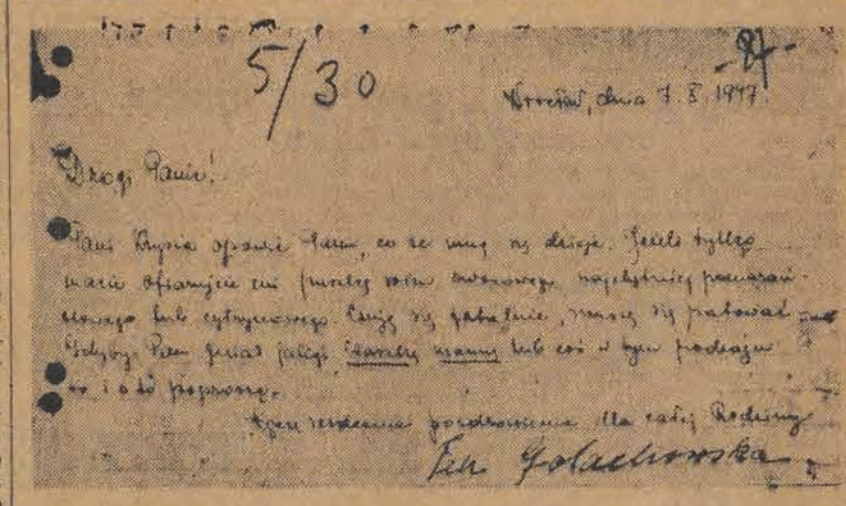 5/30
Wrocław, dnia 7. X. 1947.
Drogi Panie!
Pani Krysia opowie Panu, co ze mną się dzieje. Jeżeli tylko
macie ofiarujcie mi puszkę soku owocowego, najchętniej pomarań-
czowego lub cytrynowego. Czuję się fatalnie, muszę się ratować
Gdyby Pan lub coś w tym rodzaju
to i o to poproszę.
serdeczne pozdrowienia dla całej Rodziny
Golachowska